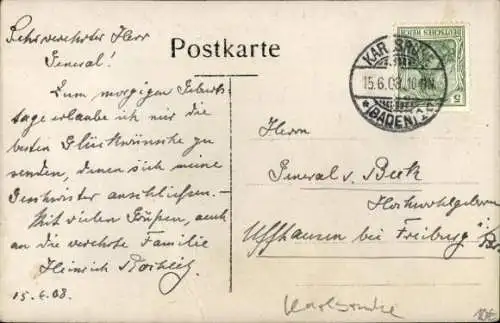 Sehr verehrter Herr
General!
Zum morgigen Geburts-
tage erlaube ich mir die
besten Glückwünsche zu
senden, denen sich meine
Geschwister anschliessen. -
Mit vielen Grüßen, auch
an die verehrte Familie
Heinrich
15.6.08.
Postkarte
DEUTSCHES REICH
5
KARLSRUHE
15.6.08. 10-11N.
* (BADEN) 1
Herrn
General v. Beck
Hochwohlgeboren
Uffhausen bei Freiburg i/
Karlsruhe
10€